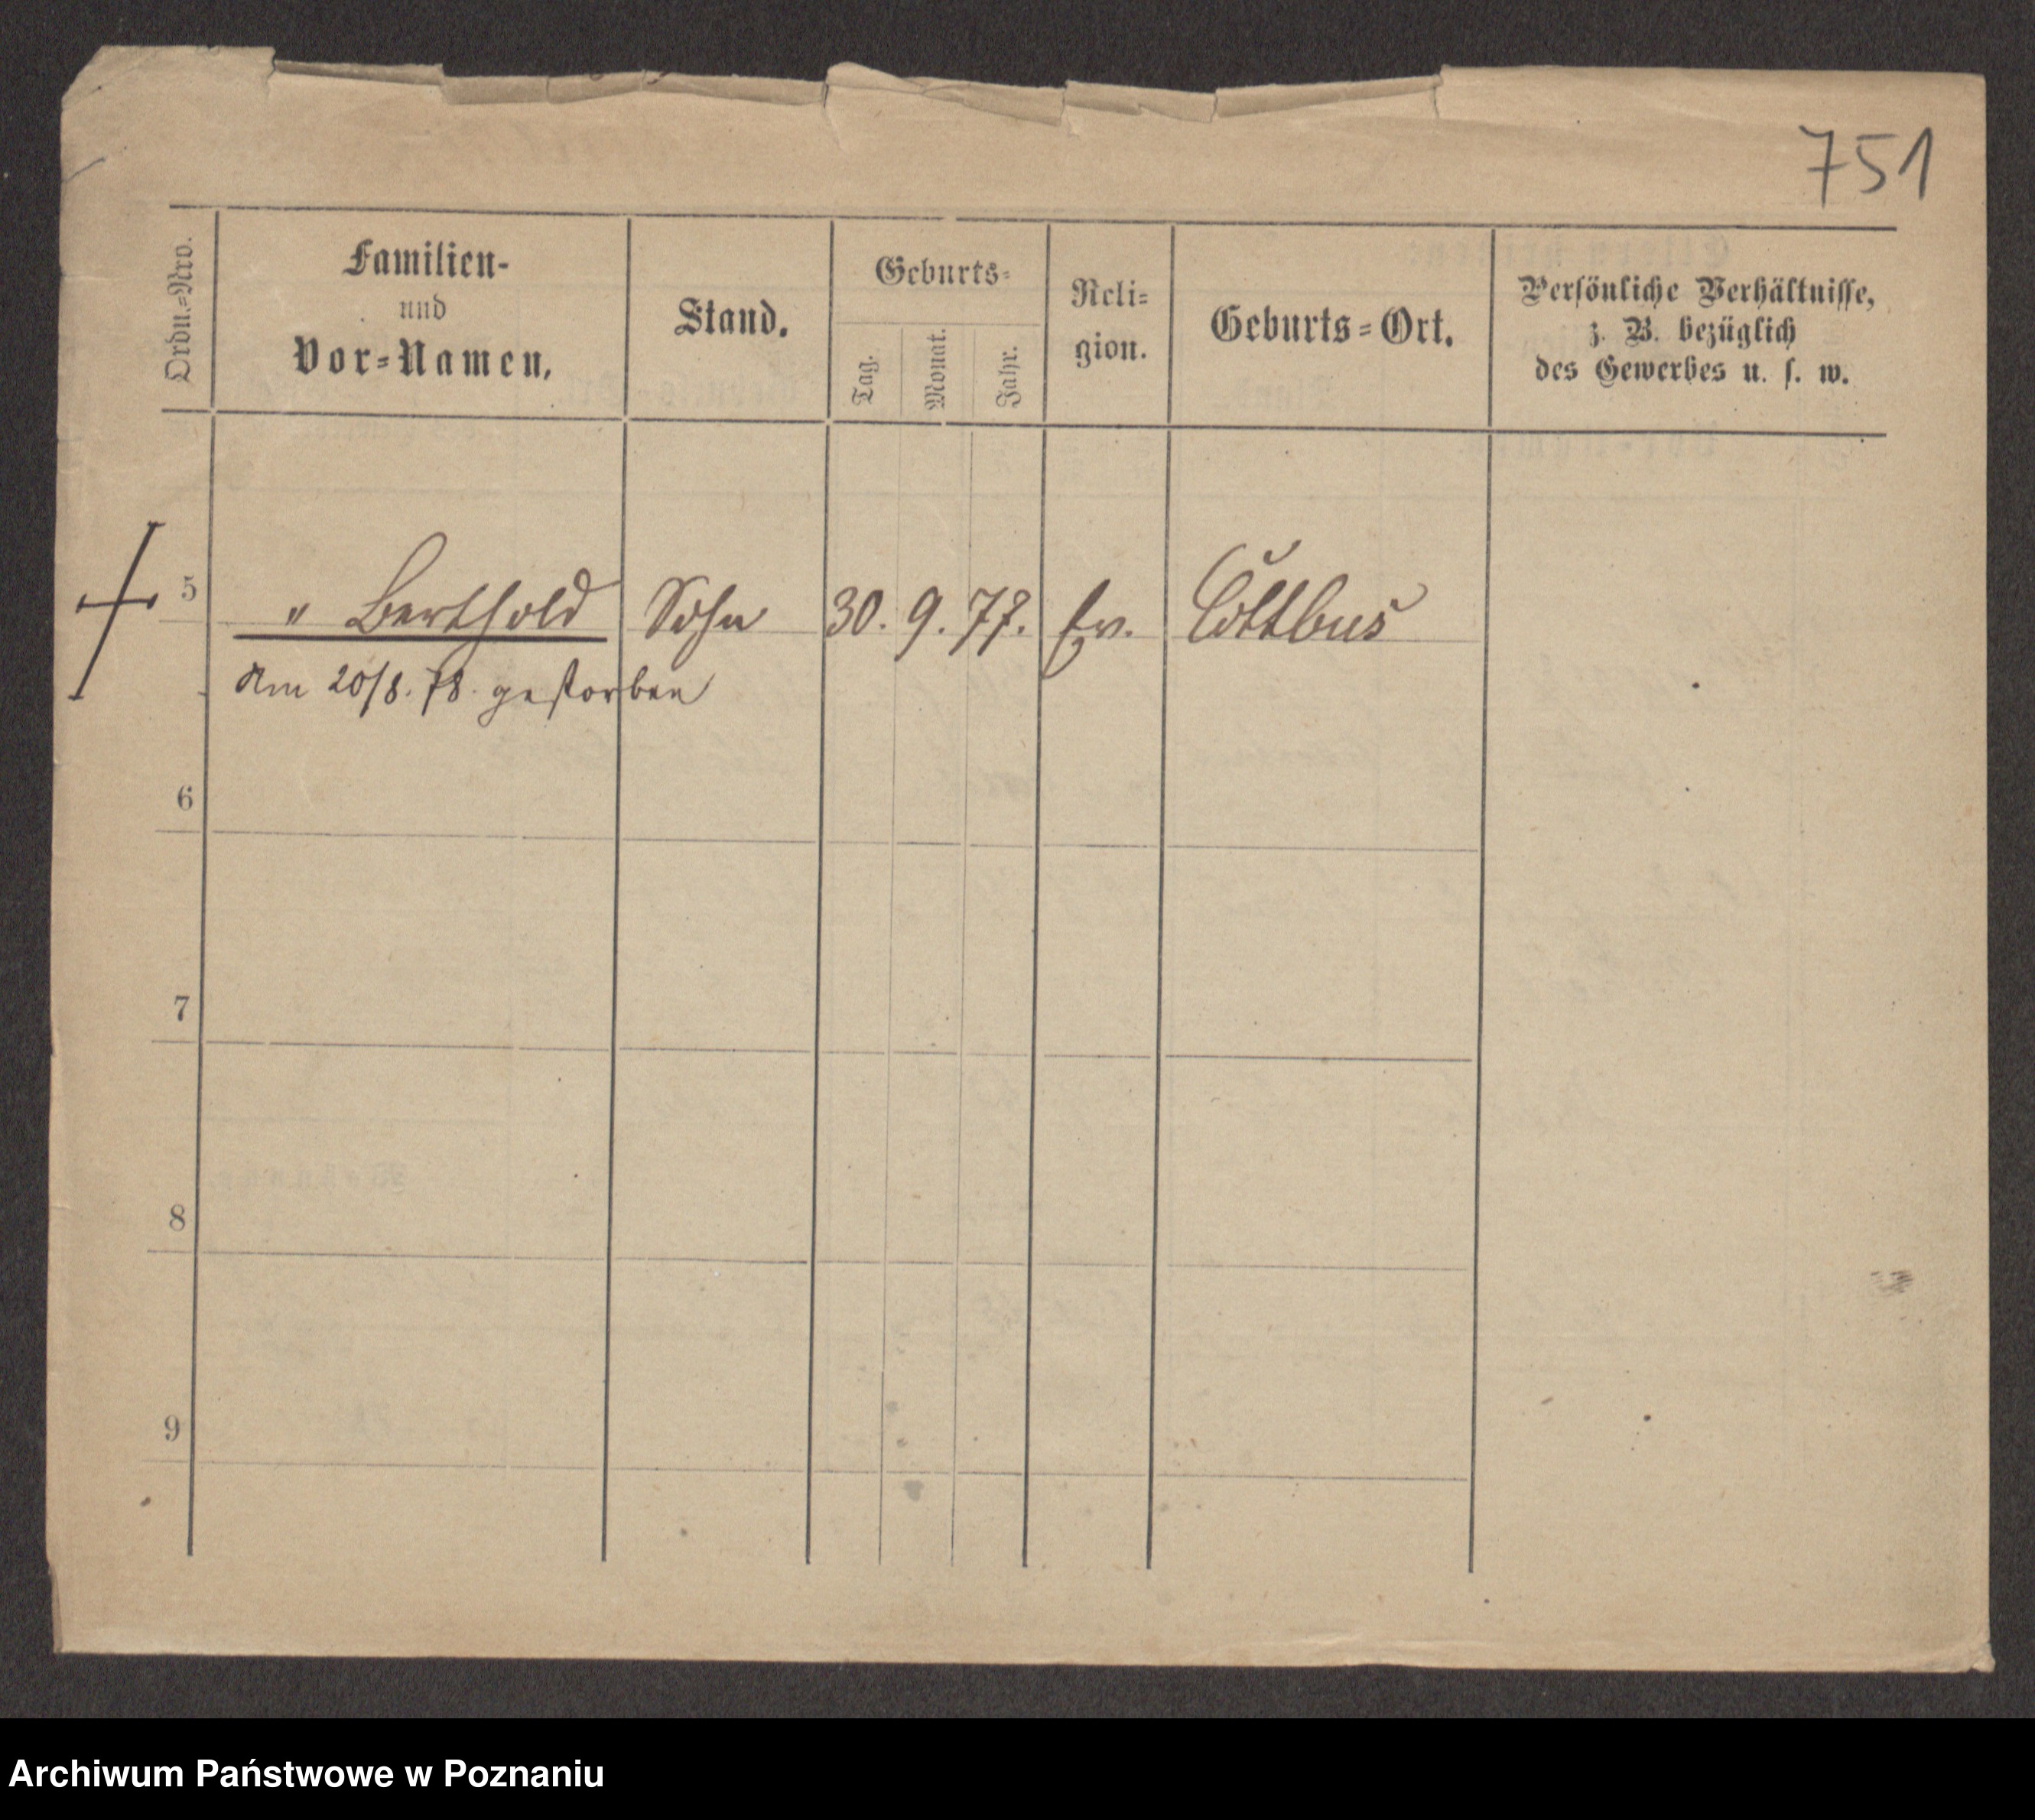 751
Ordn.=Nro.
Familien-
und
Vor=Namen.
Stand.
Geburts=
Tag.
Monat.
Jahr.
Reli=
gion.
Geburts=Ort.
Persönliche Verhältnisse,
z. B. bezüglich
des Gewerbes u. s. w.
5 " Berthold Sohn 30. 9. 77. Ev. Cottbus
Am 20/8. 78. gestorben
6
7
8
9
Archiwum Państwowe w Poznaniu